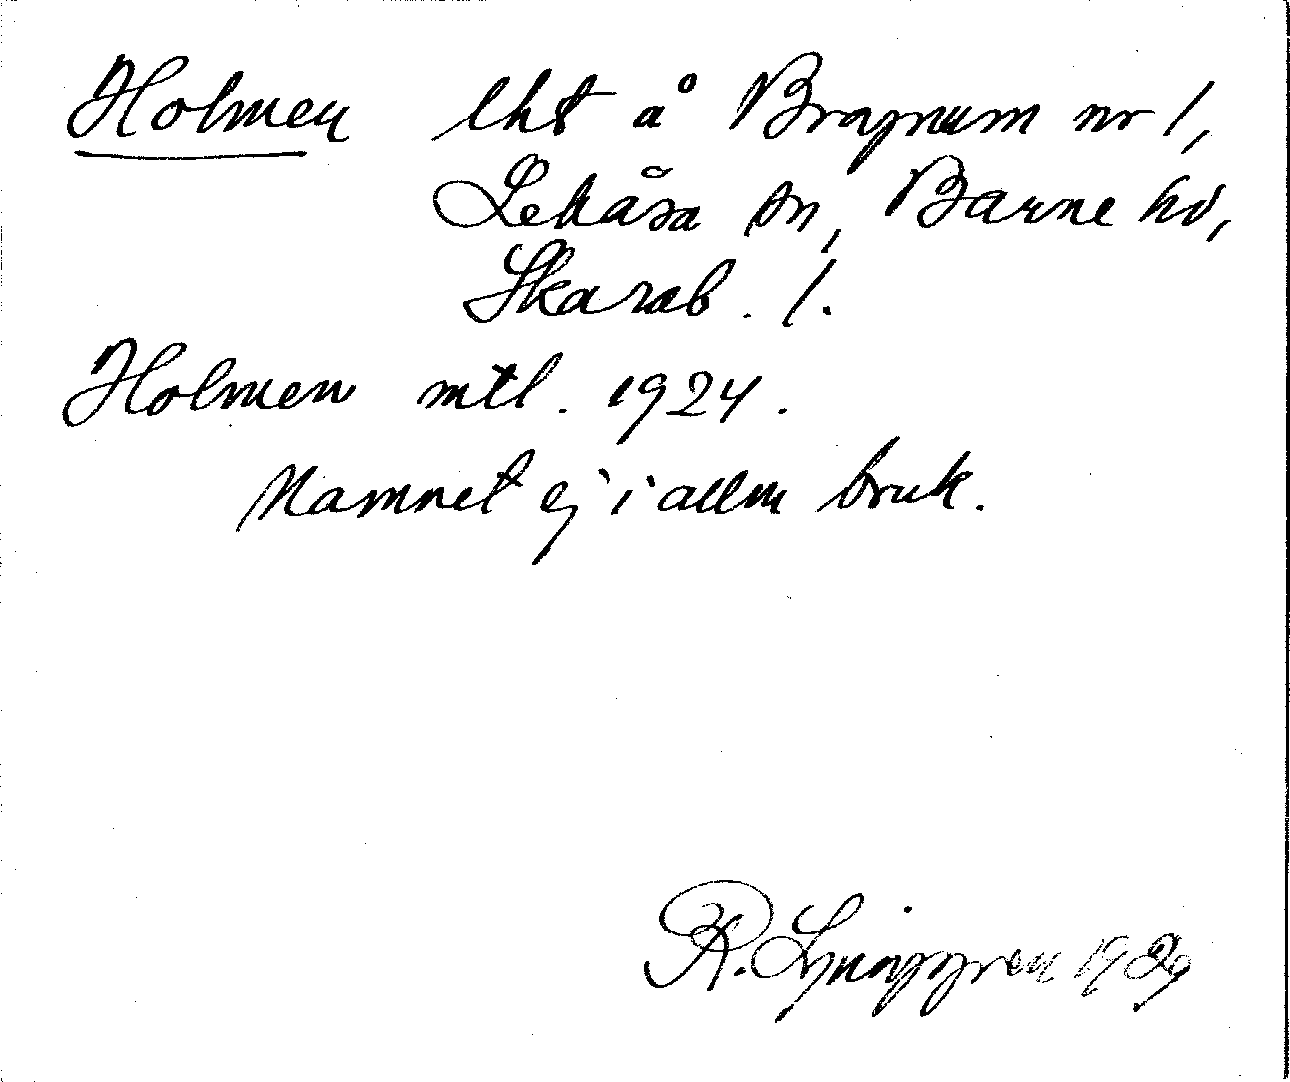 Holmen lht å Bragnum nr 1,
Lekåsa sn, Barne hd,
Skarab. l.
Holmen mtl. 1924.
Namnet ej i allm bruk.
R. Ljunggren 1929